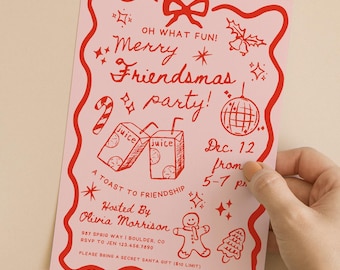 OH WHAT FUN!
Merry
Friendsmas
party!
juice
juice
Dec. 12
from
5-7 p
A TOAST TO FRIENDSHIP
Hosted By
Olivia Morrison
987 SPRIG WAY | BOULDER, CO
RSVP TO JEN 123.456.7890
PLEASE BRING A SECRET SANTA GIFT ($10 LIMIT)